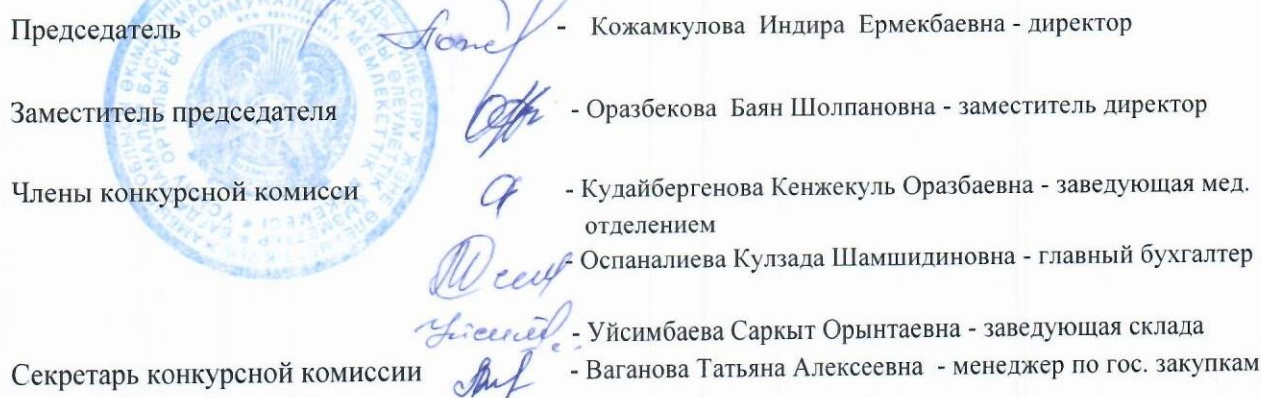 Председатель - Кожамкулова Индира Ермекбаевна - директор
Заместитель председателя - Оразбекова Баян Шолпановна - заместитель директор
Члены конкурсной комисси - Кудайбергенова Кенжекуль Оразбаевна - заведующая мед.
отделением
- Оспаналиева Кулзада Шамшидиновна - главный бухгалтер
- Уйсимбаева Саркыт Орынтаевна - заведующая склада
Секретарь конкурсной комиссии - Ваганова Татьяна Алексеевна - менеджер по гос. закупкам